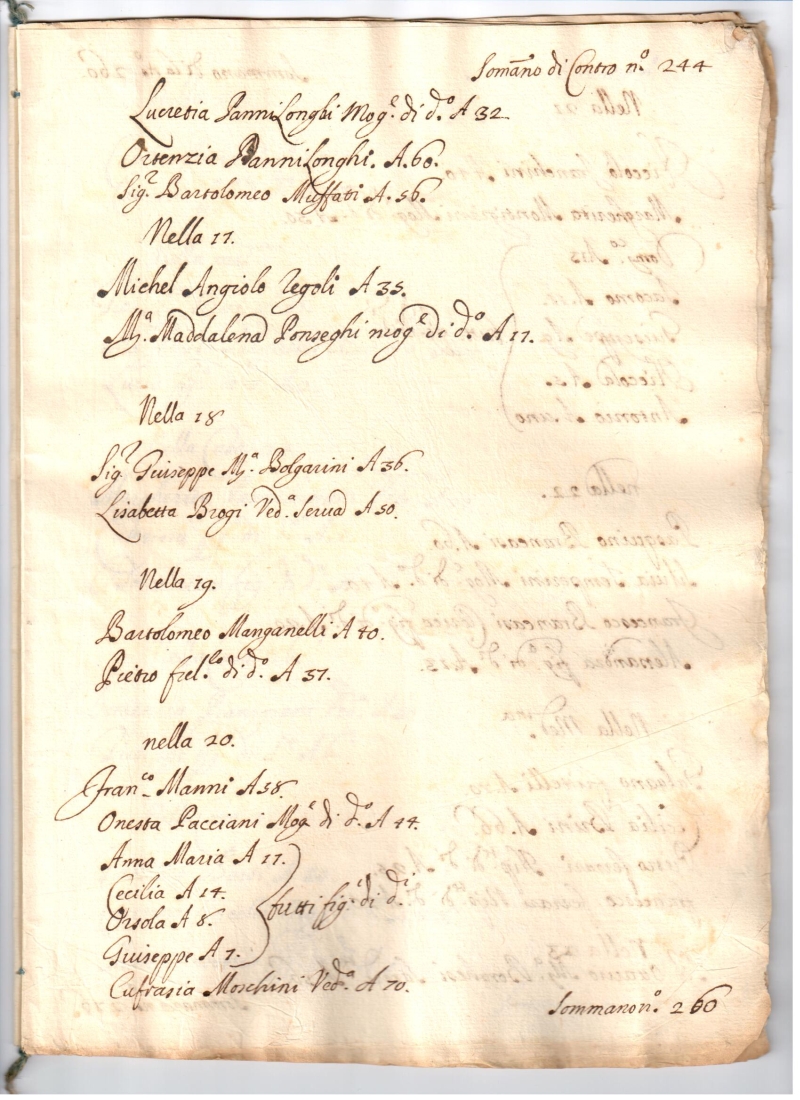 Som̃ano di Contro nº. 244
Lucretia PanniLonghi Mog.e di d.º A 32
Ortenzia PanniLonghi. A. 60.
Sig.r Bartolomeo Muffati A. 56.
Nella 17.
Michel Angiolo Regoli A 35.
M.a Maddalena Ponseghi mog.e di d.º A 17.
Nella 18
Sig.r Giuseppe M.a Bolgarini A 36.
Lisabetta Brogi Ved.a Serva A 50.
Nella 19.
Bartolomeo Manganelli A 40.
Pietro frel.lo di d.º A 37.
nella 20.
Fran.co Manni A 58.
Onesta Pacciani Mog.e di d.º A 44.
Anna Maria A 17.
Cecilia A 14.
tutti fig.i di d.i
Orsola A 8.
Giuseppe A 7.
Eufrasia Moschini Ved.a A 70.
Sommano nº. 260